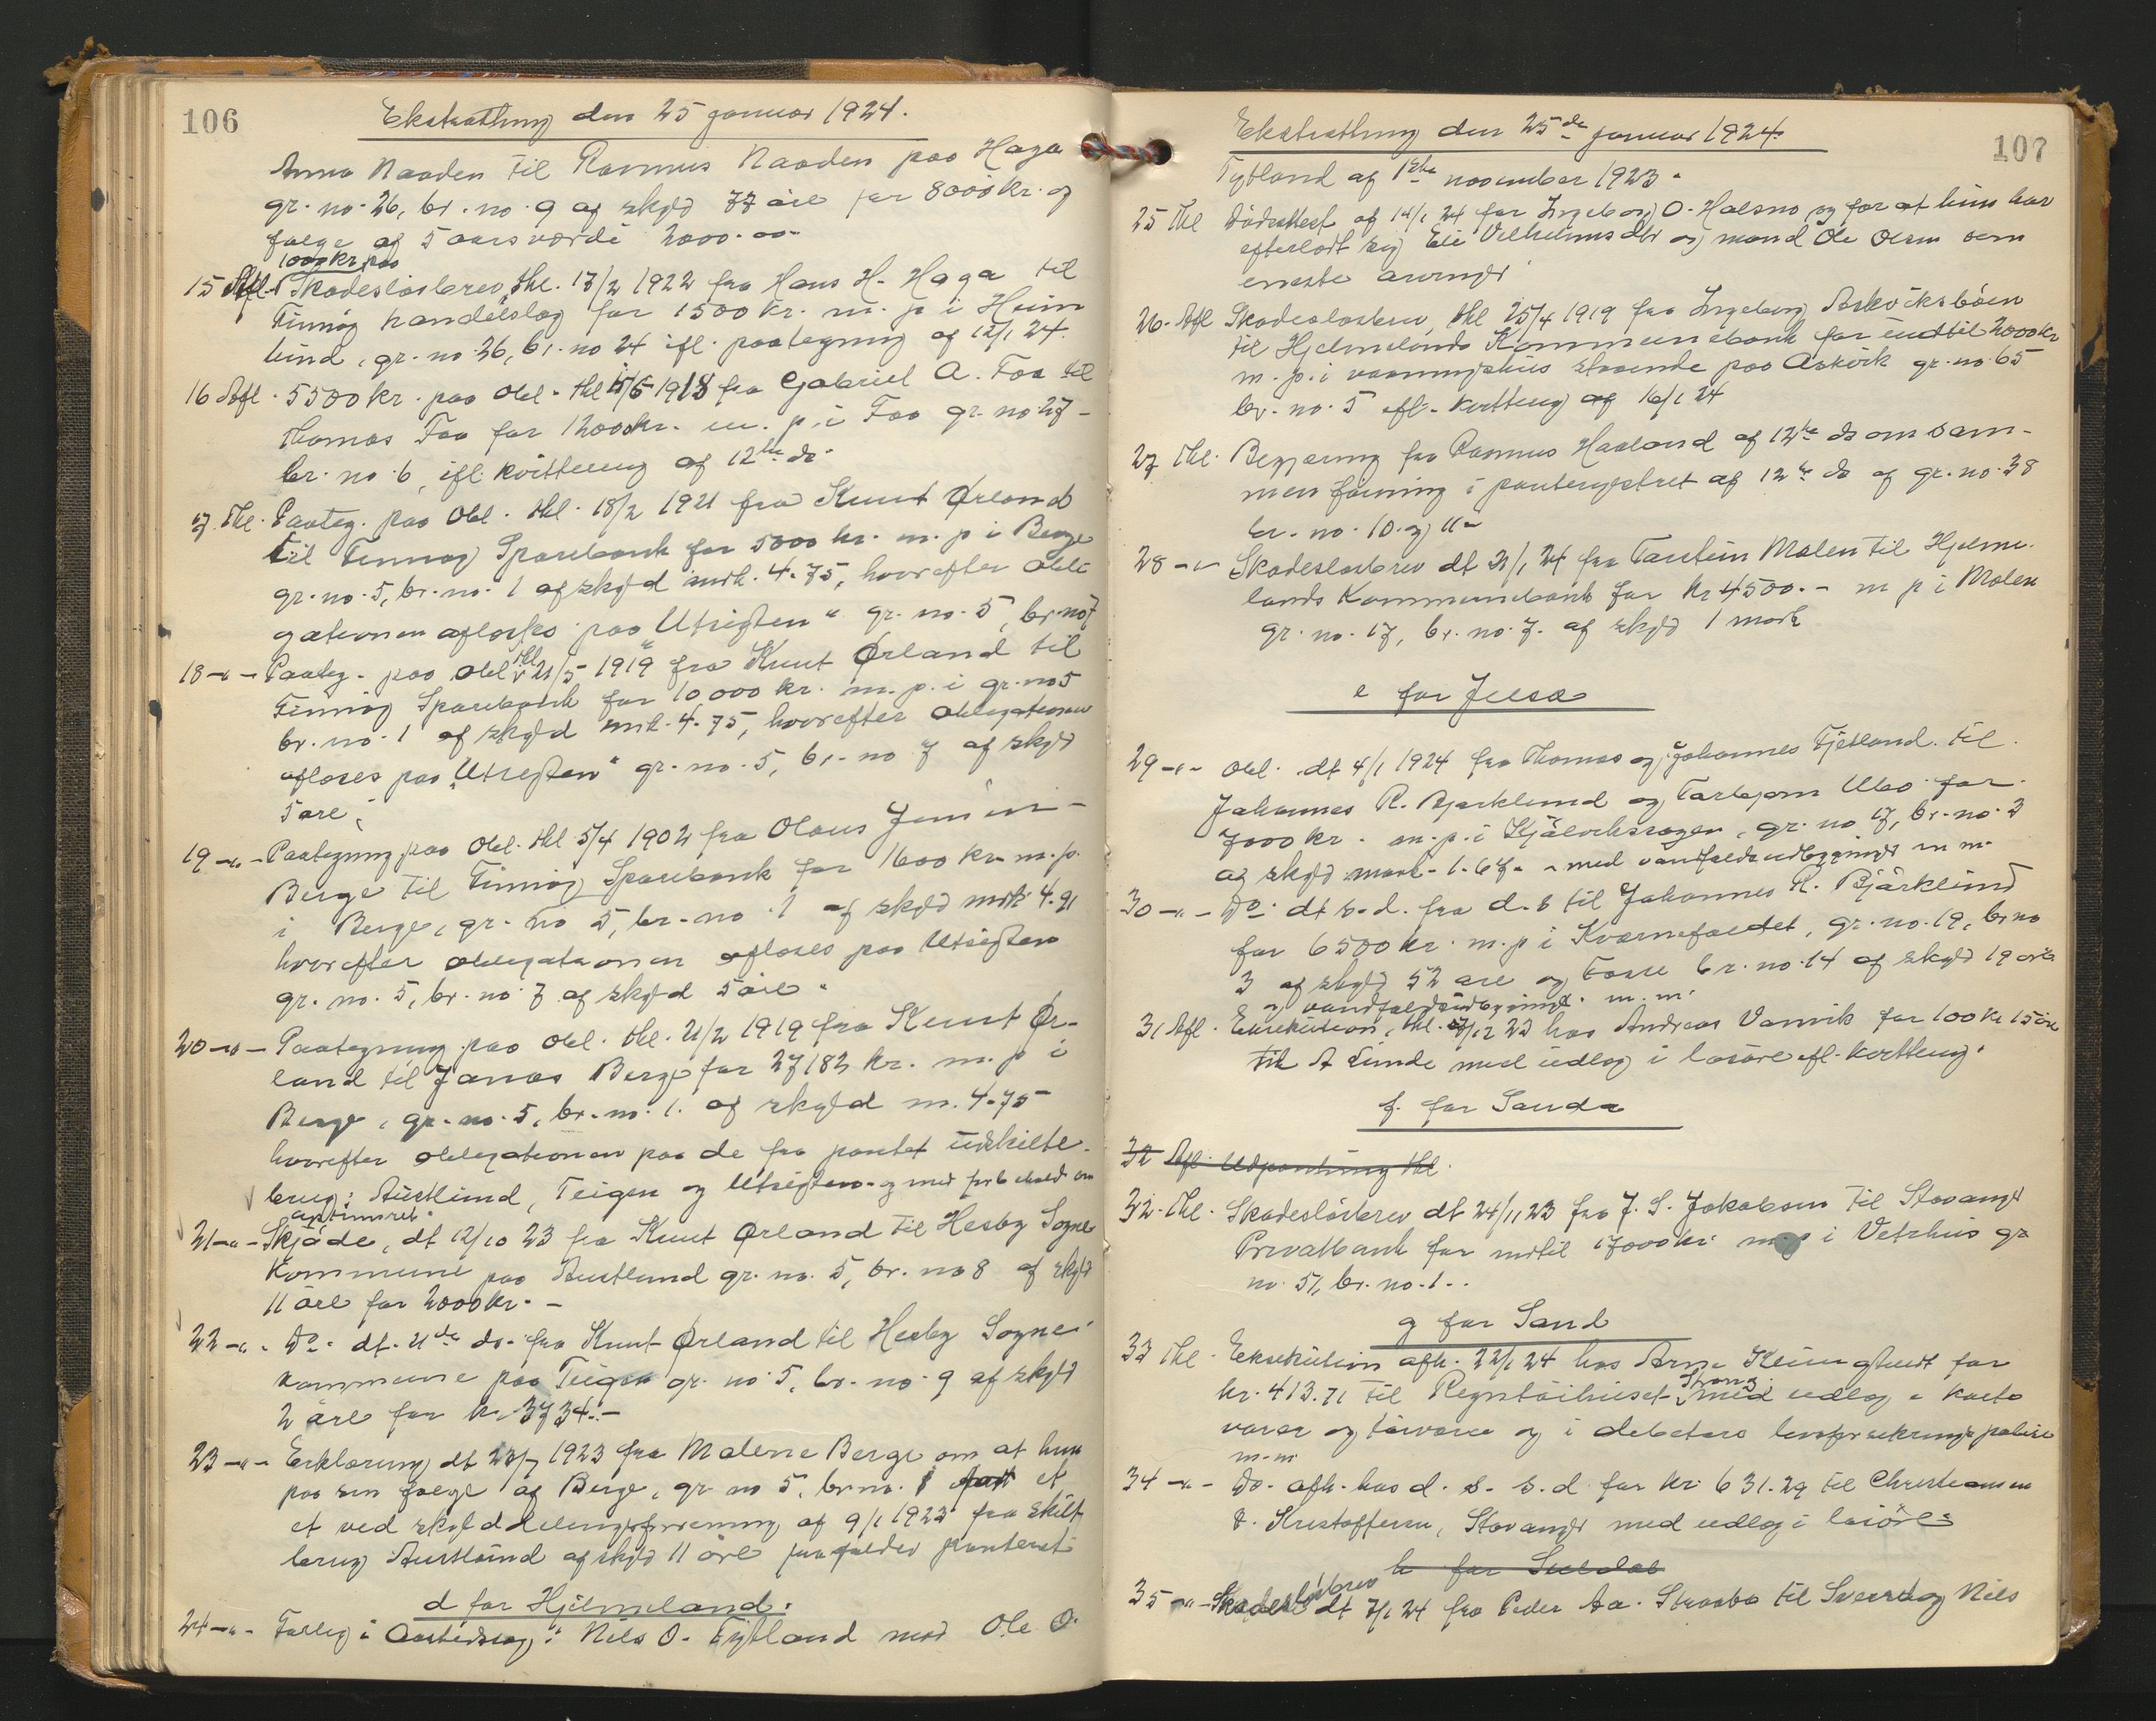 106
Ekstrathing den 25 januar 1924.
Anna Naaden til Rasmus Naaden paa Haga
gr. no. 26, br. no. 9 af skyld 77 øre for 8000 kr. og
følge af 5 aars værdi 2000.00
1000 kr. paa
15 Afl. Skadesløsbrev, thl. 17/2 1922 fra Hans H. Haga til
Finnøy handelslag for 1500 kr. m. p. i Heim
lund, gr. no. 26, br. no 24 ifl. paategning af 12/1 24.
16 Afl. 5500 kr. paa Obl. thl 15/5 1918 fra Gabriel A. Foa til
Thomas Foa for 12000 kr. m. p. i Foa gr. no. 27
br. no. 6, ifl. kvittering af 12te ds.
17. Thl. Paateg. paa Obl. thl. 18/2 1921 fra Knut Ørland
til Finnøy Sparebank for 5000 kr. m. p i Berge
gr. no. 5, br. no. 1 af skyld mrk. 4.75, hvorefter obli
gationen afløses paa "Utsigten" gr. no. 5, br. no 7
18 -"- Paateg. paa Obl thl 21/5 1919 fra Knut Ørland til
Finnøy Sparebank for 10000 kr. m. p. i gr. no 5
br. no. 1 af skyld mrk. 4.75, hvorefter obligationen
afløses paa "Utsigten" gr. no. 5, br. no 7 af skyld
5 øre.
19 -"- Paategning paa Obl. thl 5/4 1902 fra Olaus Jensen
Berge til Finnøy Sparebank for 1600 kr. m. p.
i Berge, gr. no 5, br. no. 1 af skyld mrk 4.91
hvorefter obligationen afløses paa Utsigten
gr. no. 5, br. no. 7 af skyld 5 øre.
20 -"- Paategning paa Obl. thl. 21/2 1919 fra Knut Ør-
land til Janas Berge for 27182 kr. m. p i
Berge, gr. no. 5, br. no. 1. af skyld m. 4.75
hvorefter obligationen paa de fra pantet udskilte
brug: Austlund, Teigen og Utsigten og med forbehold om
21 -"- Skjøde, dt 12/10 23 fra Knut Ørland til Hesby Sogne
kommune paa Austlund gr. no. 5, br. no 8 af skyld
11 øre for 2000 kr. -
22 -"- Do. dt. 21de ds. fra Knut Ørland til Hesby Sogne
kommune paa Teigen gr. no. 5, br. no. 9 af skyld
2 øre for kr. 3734.-
23 -"- Erklæring dt 23/7 1923 fra Malene Berge om at hun
paa sin følge af Berge, gr. no 5, br. no. 1 et
et ved skylddelingsforretning af 9/1 1923 fra skilt
brug Austlund af skyld 11 øre frafalder panteret
d for Hjelmeland.
24 -"- Forlig i Aastedssag: Nils O. Fytland mod Ole O.
107
Ekstrathing den 25de januar 1924.
Fytland af 1ste november 1923.
25 Thl Dødsattest af 14/1 24 for Ingeborg O. Halsno og for at hun har
efterladt sig Eli Vilhelmsdtr og mand Ole Olsen som
eneste arvinger
26. Afl Skadesløsbrev, thl 25/4 1919 fra Ingeborg Askviksbøen
til Hjelmelands Kommunebank for indtil 2000 kr
m. p. i vaaningshus staaende paa Askvik gr. no. 65
br. no. 5 ifl. kvittering af 16/1 24
27 Thl. Begjæring fra Rasmus Haaland af 12te ds om sam-
menføining i panteregistret af 12te ds af gr. no. 38
br. no. 10. og 11
28 -"- Skadesløsbrev dt 21/1 24 fra Tarstein Molen til Hjelme-
lands Kommunebank for kr 4500.- m p i Molen
gr. no. 17, br. no. 7. af skyld 1 mark
e for Jelsa
29 -"- Obl. dt 4/1 1924 fra Thomas og Johannes Fjetland. til
Johannes R. Bjørklund og Tarbjørn Ubo for
7000 kr. m. p. i Kjølvikssagen, gr. no 17, br. no. 3
af skyld mark 1.67. - med vandfaldsudbygninger m m.
30 -"- Do. dt s. d. fra d. s til Johannes R. Bjørklund
for 6500 kr. m. p i Kværnefaldet, gr. no. 19, br no
3 af skyld 52 øre og Fosse br. no. 14 af skyld 19 øre
og vandfaldsudbygninger m. m.
31 Afl. Eksekution, thl. 27/12 23 hos Andreas Vanvik for 100 kr 15 øre
til A Lunde med udlæg i løsøre ifl. kvittering.
f. for Sauda
32 Afl. Udpantning thl.
32. Thl. Skadesløsbrev dt 24/11 23 fra J. S. Jakobsen til Stavanger
Privatbank for indtil 17000 kr m. p i Vetrhus gr
no. 51, br. no. 1..
g for Sand
33 Thl. Eksekution afh. 22/1 24 hos Arne Klungtvedt for
kr. 413.71 til Regntøihuset Stavang. med udlæg i korte
varer og tøivarer og i debetors livsforsikringspolise
m. m.
34 -"- Do. afh. hos d. s. s. d for kr. 631.29 til Christiansen
& Kristoffersen, Stavanger med udlæg i løsøre
h for Suldal
35 -"- Skadesløsbrev dt 7/1 24 fra Peder Aa. Straabø til Sverd og Nils